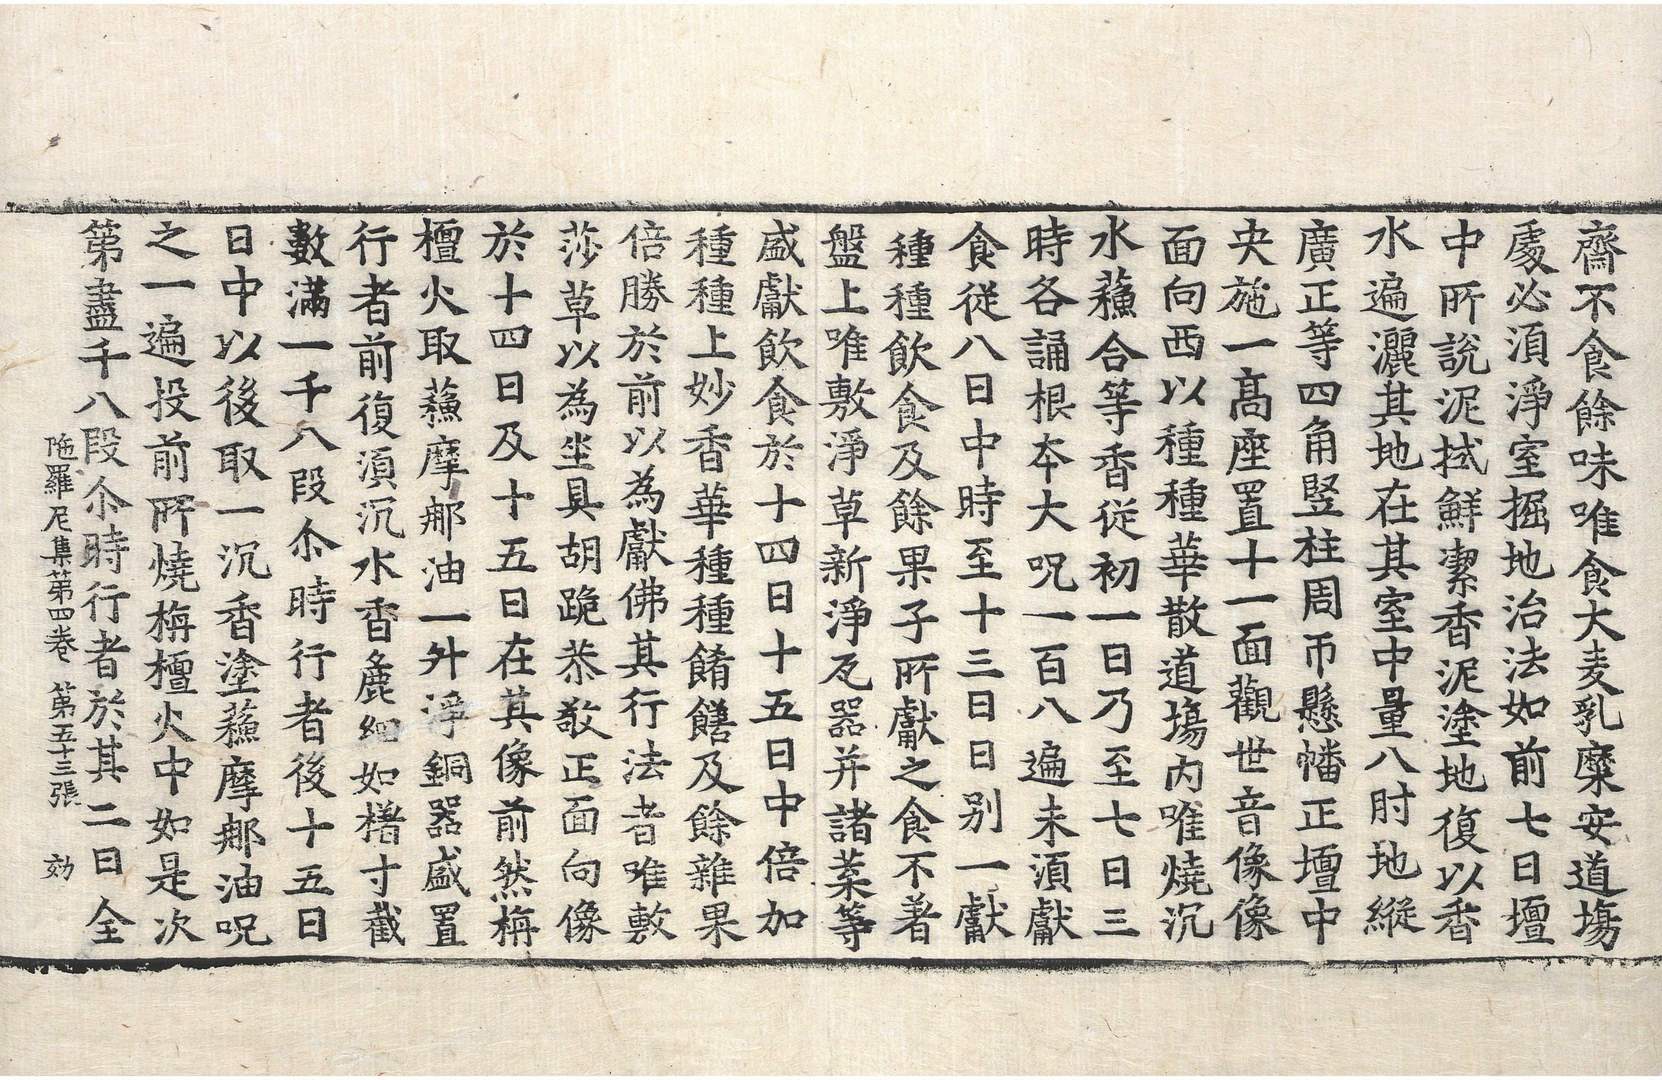 齋不食餘味唯食大麦乳糜安道場
處必湏淨室掘地治法如前七日壇
中所說泥拭鮮潔香泥塗地復以香
水遍灑其地在其室中量八肘地縱
廣正等四角竪柱周帀懸幡正壇中
央施一髙座置十一面觀世音像像
面向西以種種華散道場内唯燒沉
水蘓合等香從初一日乃至七日三
時各誦根夲大呪一百八遍未湏獻
食從八日中時至十三日日別一獻
種種飲食及餘果子所獻之食不著
盤上唯敷淨草新淨瓦器并諸菜等
盛獻飲食於十四日十五日中倍加
種種上妙香華種種餚饍及餘雜果
倍勝於前以為獻佛其行法者唯敷
莎草以為坐具胡跪恭敬正面向像
於十四日及十五日在其像前然栴
檀火取蘓摩郍油一升淨銅器盛置
行者前復湏沉水香麁細如櫡寸截
數滿一千八段尒時行者後十五日
日中以後取一沉香塗蘓摩郍油呪
之一遍投前所燒栴檀火中如是次
第盡千八段尒時行者於其二日全
陁羅尼集第四卷　第五十三張　効